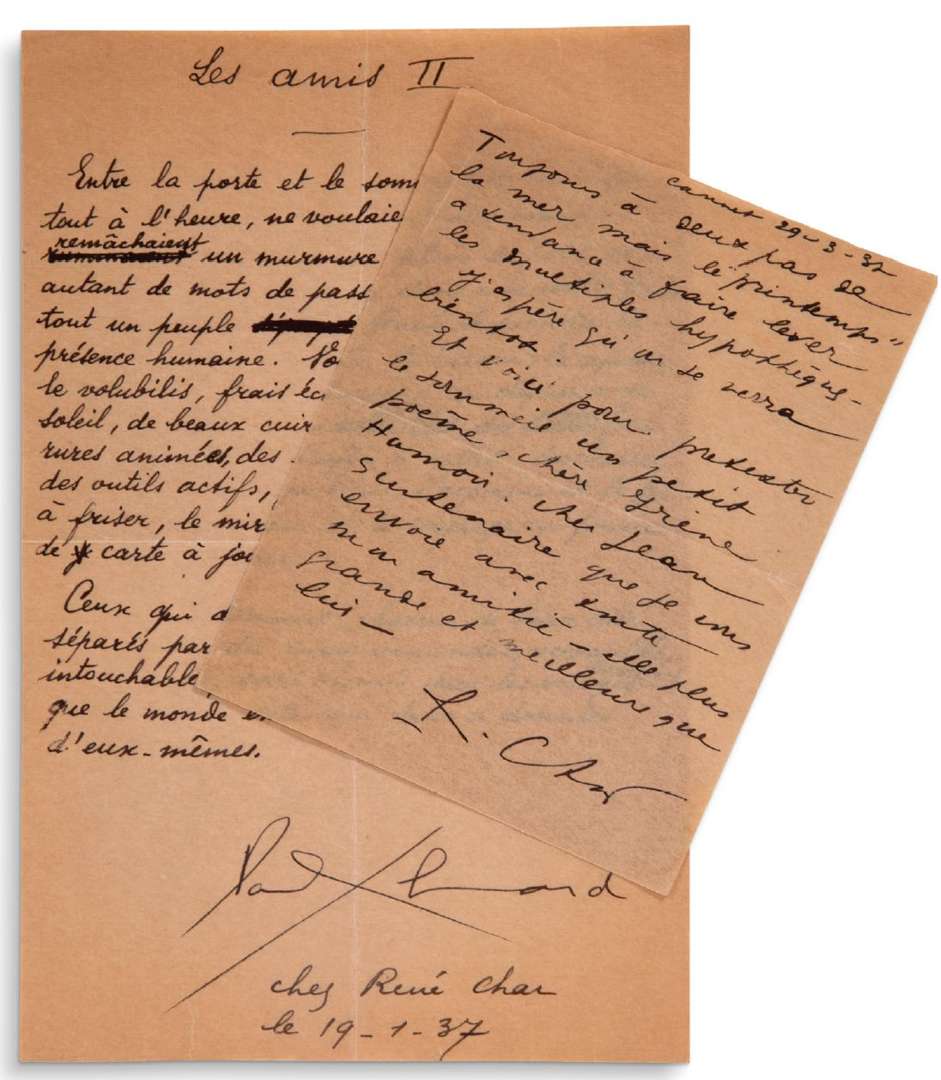 Les amis II
Entre la porte et le som
tout à l'heure, ne voulaie
remâchaient
un murmure
autant de mots de pass
tout un peuple
présence humaine. Vo
le volubilis, frais éc
soleil, de beaux cuir
rures animées, des
des outils actifs,
à friser, le mir
de carte à jou
Ceux qui d
séparés par
intouchable
que le monde en
d'eux-mêmes.
Paul Eluard
chez René Char
le 19-1-37
Cannet 29-3-37
Toujours à deux pas de
la mer mais le "printemps"
a tendance à faire lever
les multiples hypothèques-
J'espère qu'on se verra
bientôt.
Et voici pour
le sommeil un petit
poème, chère Grène
Hamoir. cher Jean
Scutenaire que je vous
envoie avec toute
mon amitié - elle plus
grande et meilleure que
lui -
R. Char